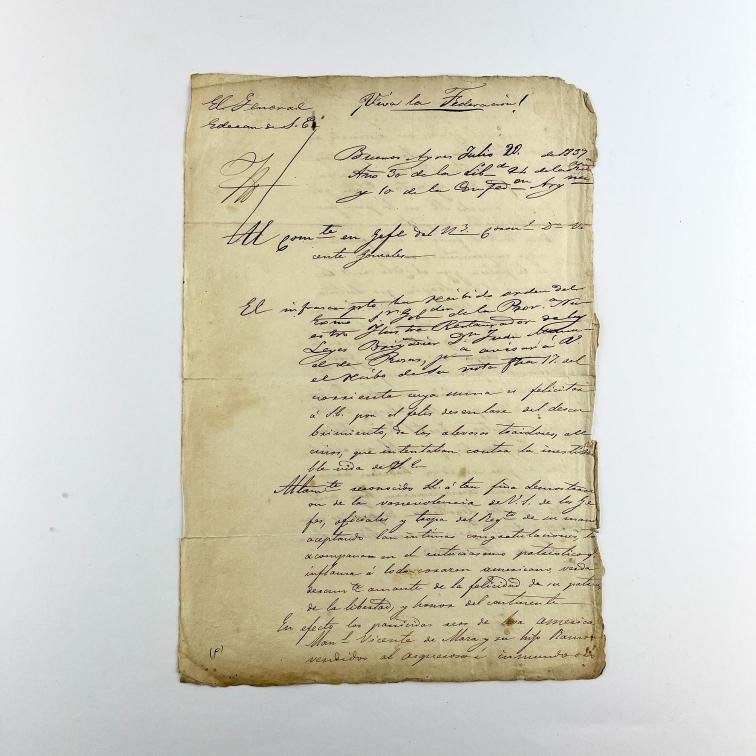 El General
Edecan de S. E.
¡Viva la Federacion!
Buenos Ayres Julio 20 de 1839
Año 30 de la Lib.d 24 de la
y 10 de la Confed.on Arg
Al Com.te en Gefe del N.3 Coron.l Dn Vi
cente Gonzales
El infrascripto ha recibido orden del
Exmo S.r Gob.dor de la Prov.a Nu
estro Ilustre Restaurador de las
Leyes Brigadier Dn Juan Manu
el de Rosas, p.a avisar á V.
el recibo de su nota fha 17. del
corriente cuya mira es felicitar
á S.E. por el feliz desenlase del descu
brimiento, de los alevosos traidores, ase
cinos, que intentaban contra la inestima
ble vida de S.E.
Altam.te reconocido S.E. á tan fina demostraci
on de la venevolencia de V.S. de los Ge
fes, oficiales y tropa del Reg.to de su mando
aceptando tan intimas congratulaciones, lo
acompañan en el entuciasmo patriotico q
inflama á todo corazon americano, verda
deram.te amante de la felicidad de su patria,
de la libertad, y honor del continente
En efecto los parricidas reos de lesa America
Man.l Vicente de Maza y su hijo Ramon
vendidos al asqueroso é inmundo